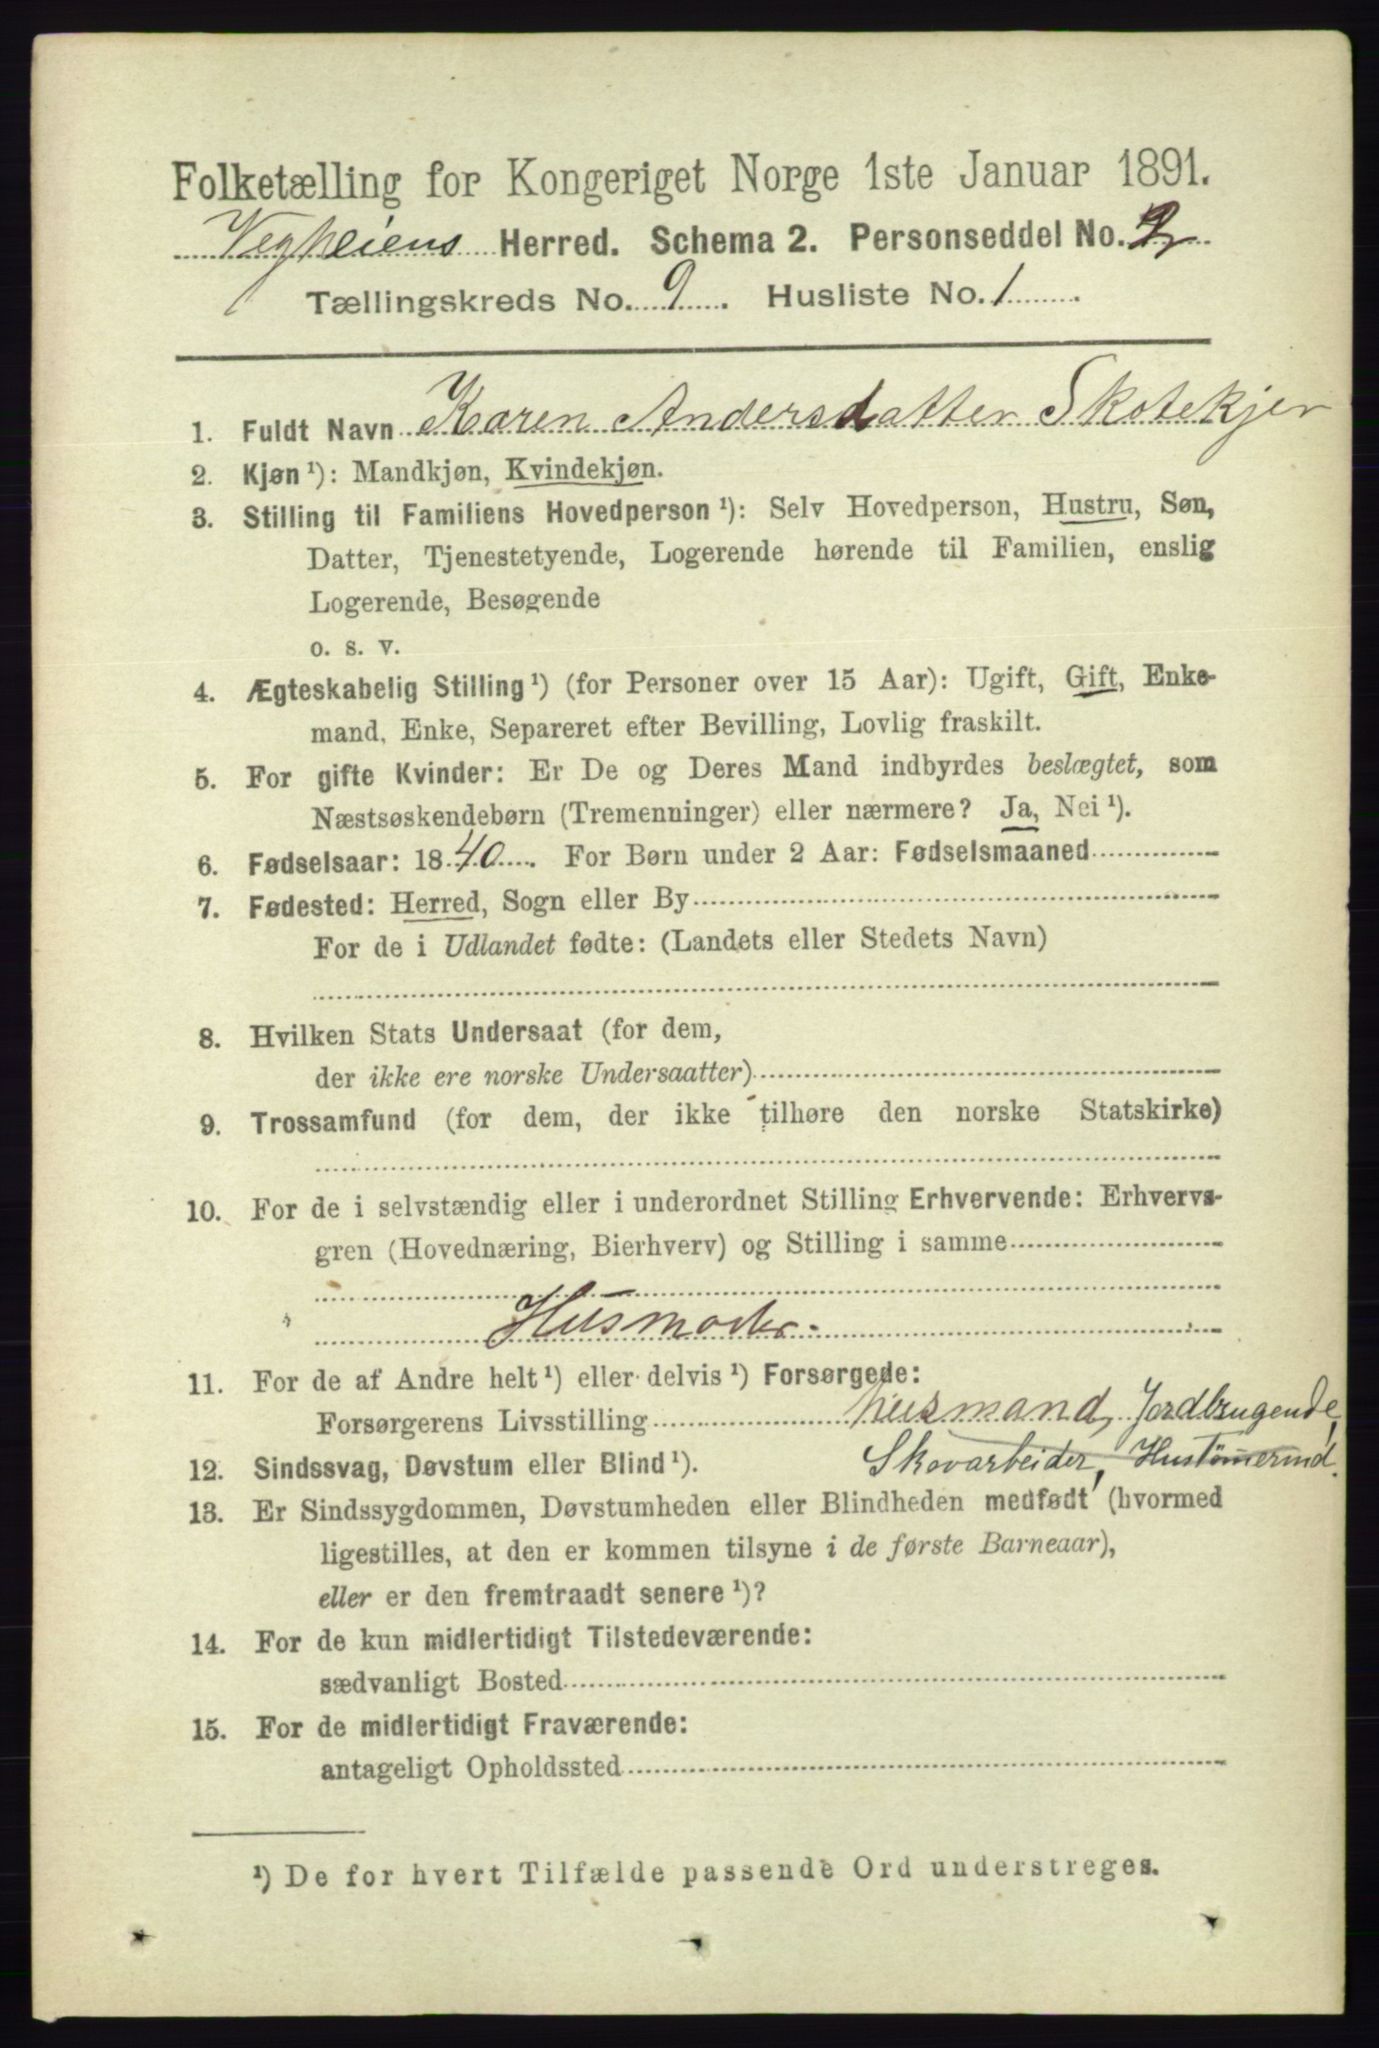 Folketælling for Kongeriget Norge 1ste Januar 1891.
Vegheiens Herred. Schema 2. Personseddel No. 2
Tællingskreds No. 9. Husliste No. 1
1. Fuldt Navn Karen Andersdatter Skotekjer
2. Kjøn¹): Mandkjøn, Kvindekjøn.
3. Stilling til Familiens Hovedperson¹): Selv Hovedperson, Hustru, Søn,
Datter, Tjenestetyende, Logerende hørende til Familien, enslig
Logerende, Besøgende
o. s. v.
4. Ægteskabelig Stilling¹) (for Personer over 15 Aar): Ugift, Gift, Enke-
mand, Enke, Separeret efter Bevilling, Lovlig fraskilt.
5. For gifte Kvinder: Er De og Deres Mand indbyrdes beslægtet, som
Næstsøskendebørn (Tremenninger) eller nærmere? Ja, Nei¹).
6. Fødselsaar: 1840. For Børn under 2 Aar: Fødselsmaaned
7. Fødested: Herred, Sogn eller By
For de i Udlandet fødte: (Landets eller Stedets Navn)
8. Hvilken Stats Undersaat (for dem,
der ikke ere norske Undersaatter)
9. Trossamfund (for dem, der ikke tilhøre den norske Statskirke)
10. For de i selvstændig eller i underordnet Stilling Erhvervende: Erhvervs-
gren (Hovednæring, Bierhverv) og Stilling i samme
Husmoder.
11. For de af Andre helt¹) eller delvis¹) Forsørgede:
Forsørgerens Livsstilling Husmand, Jordbrugende,
12. Sindssvag, Døvstum eller Blind¹). Skovarbeider, Hustømermd.
13. Er Sindssygdommen, Døvstumheden eller Blindheden medfødt (hvormed
ligestilles, at den er kommen tilsyne i de første Barneaar),
eller er den fremtraadt senere¹)?
14. For de kun midlertidigt Tilstedeværende:
sædvanligt Bosted
15. For de midlertidigt Fraværende:
antageligt Opholdssted
¹) De for hvert Tilfælde passende Ord understreges.